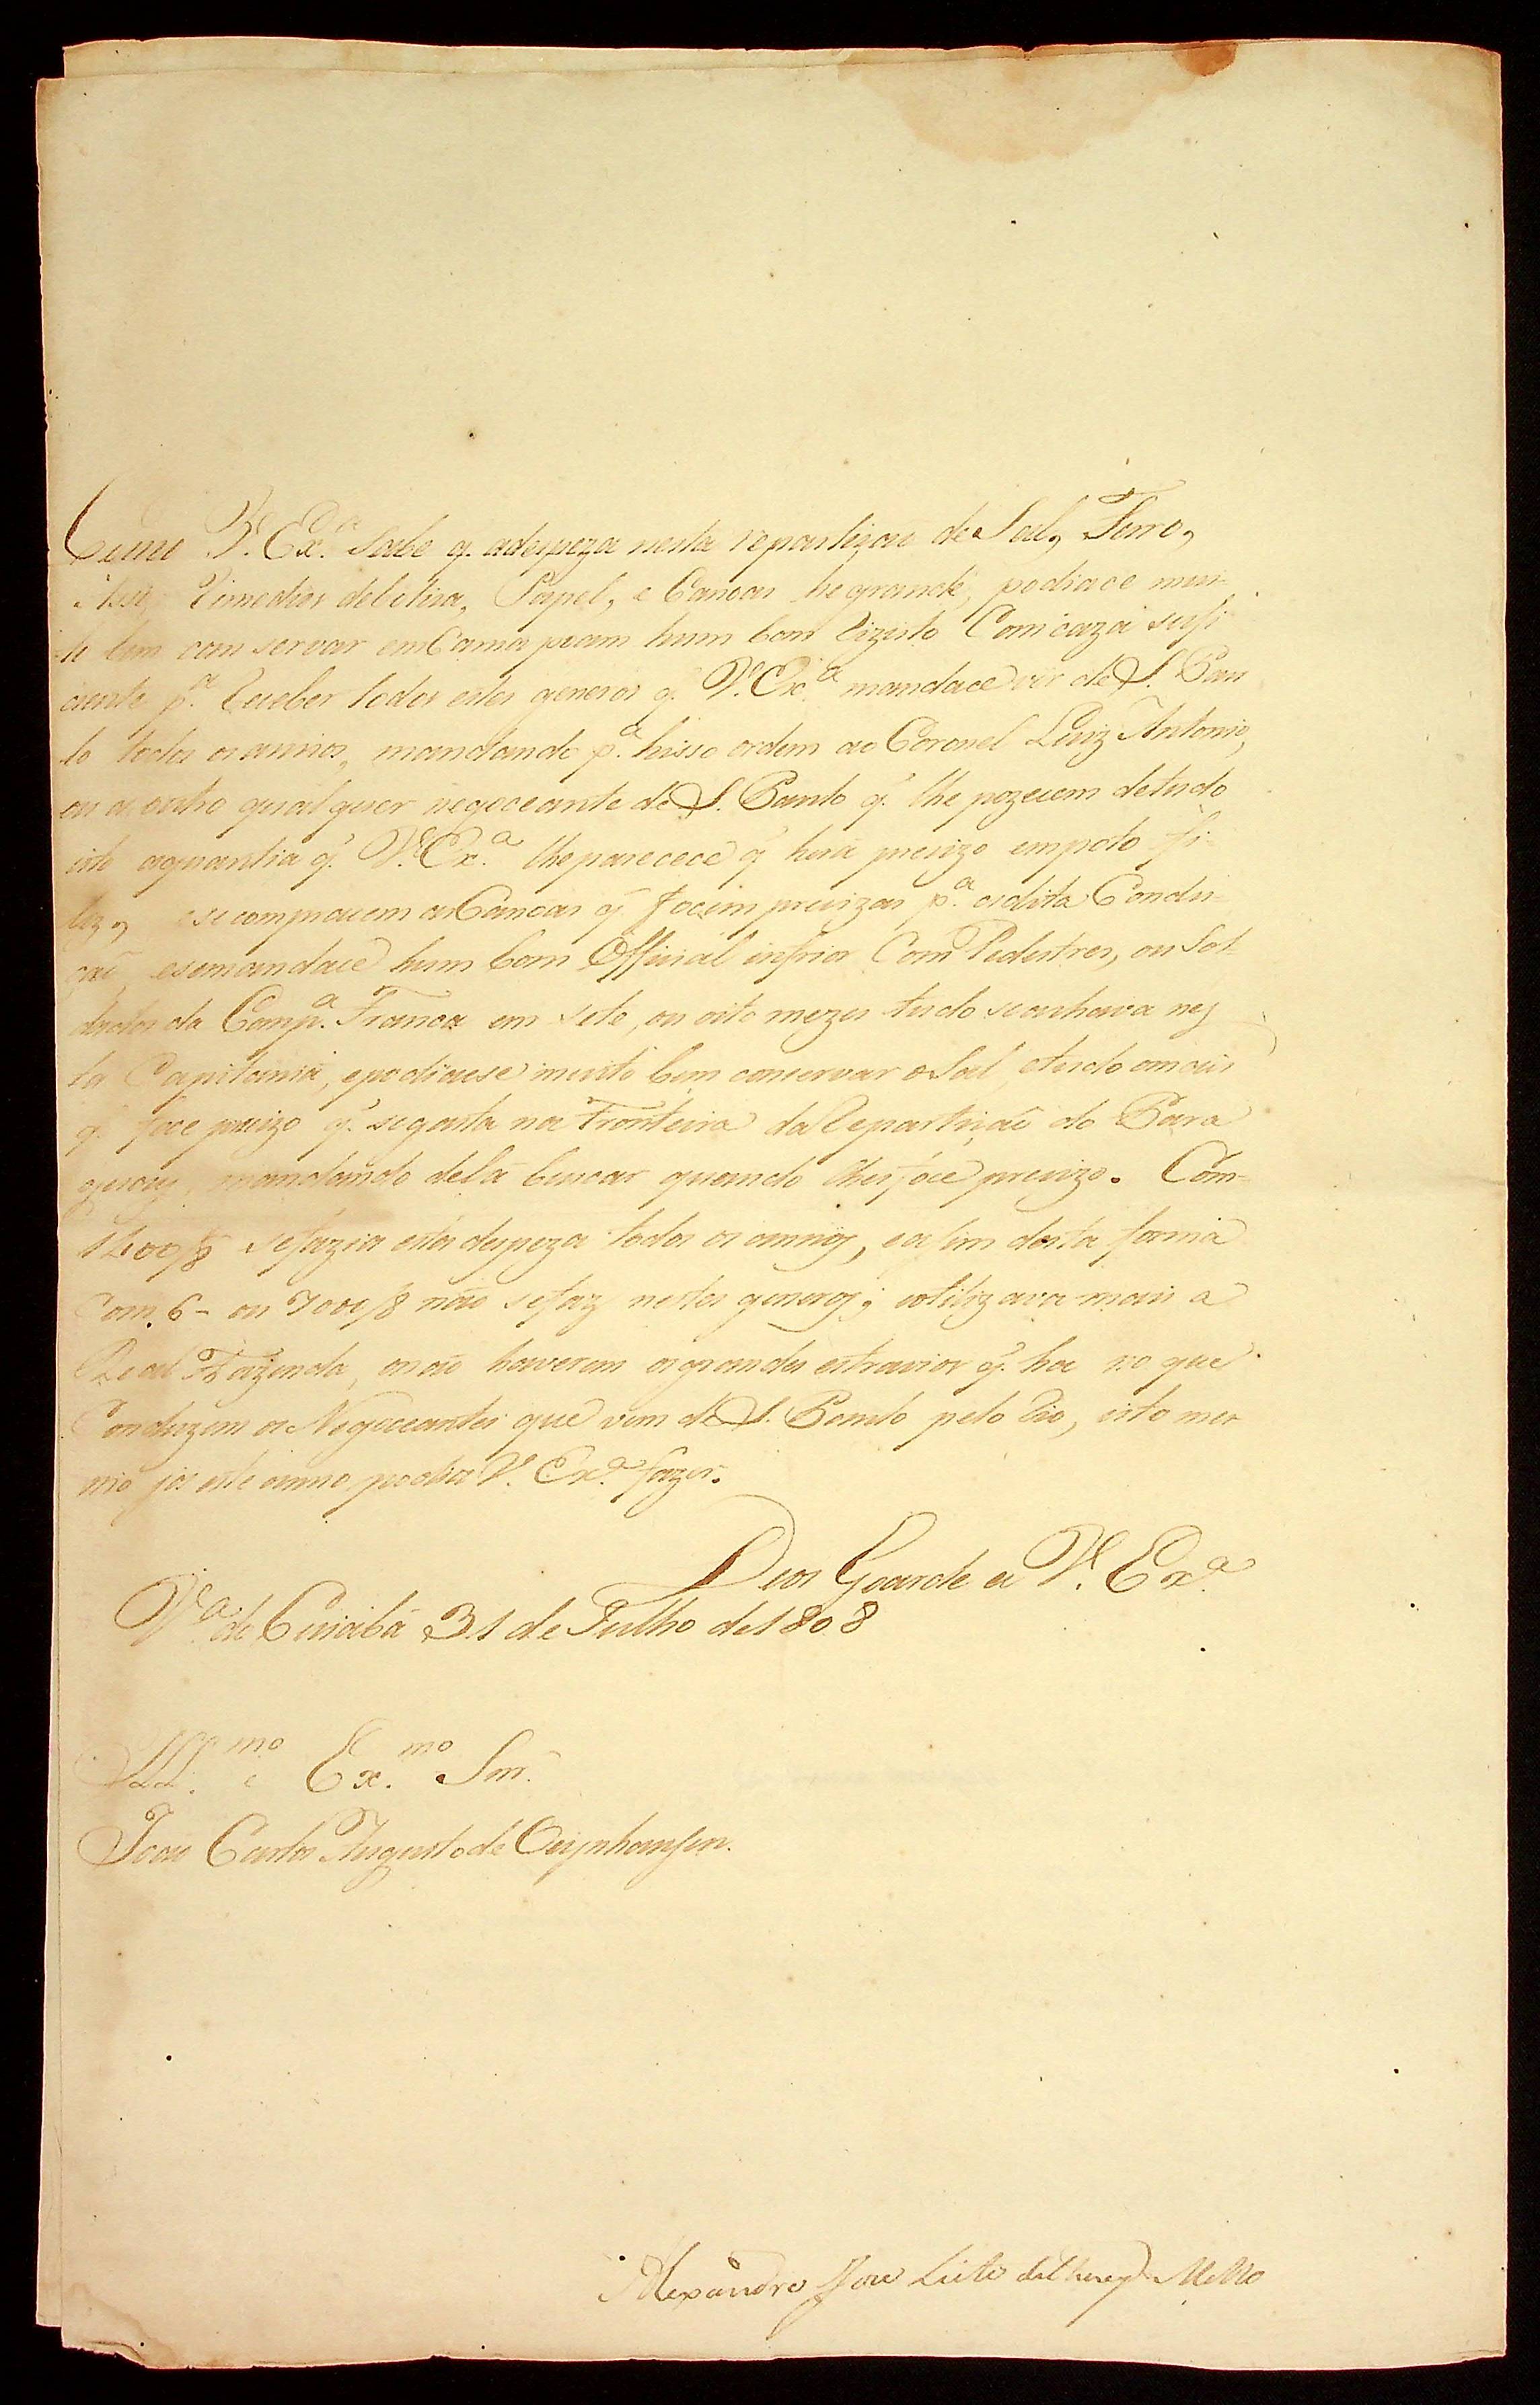 Como V. Ex.ª Sabe q. adespeza nesta repartiçaõ de Sal, Ferro,
Asso, Remedios deBotica, Papel, e Canoas he grande, podiace mui-
to bem conservar emCamapuam hum bom Rezisto Com caza sufi
ciente p.ª Receber todos estes generos q. V. Ex.ª mandace vir de S. Pau
lo todos os annos, mandando p.ª hisso ordem ao Coronel Luiz Antonio,
ou a outro qualquer negoceante de S. Paulo q. lhe pozecem detudo
isto aquantia q. V. Ex.ª lhe parecece q. hera precizo emporto fi-
liz, e se compracem asCanoas q. focem precizas p.ª adita Condu-
çaõ, esemandace hum bom Official inferior Com Pedestres, ou Sol-
dados da Comp.ª Franca em sete, ou oito mezes tudo seachava nes
ta Capitania, epodiaese muito bem conservar oSal, etudo omais
q. foce precizo q. segasta na Fronteira daRepartiçaõ do Para
guay, mandando delá buscar quando lhesfoce precizo. Com
1600/8 sefazia esta despeza todos os annos, easim desta forma
Com 6- ou 7000/8 não sefaz nestes generos; eotilizava mais a
Real Fazenda, onaõ haverem osgrandes estravios q. ha no que
Conduzem os Negoceantes que vem de S. Paulo pelo Rio, isto mes
mo já este anno podia V. Ex.ª fazer.
Deos Goarde a V. Ex.ª
V.ª do Cuiabá 31 de Julho de 1808
Ill.mo e Ex.mo Snr.
Joaõ Carlos Augusto de Oeynhausen.
Alexandre Joze Leite de Mello